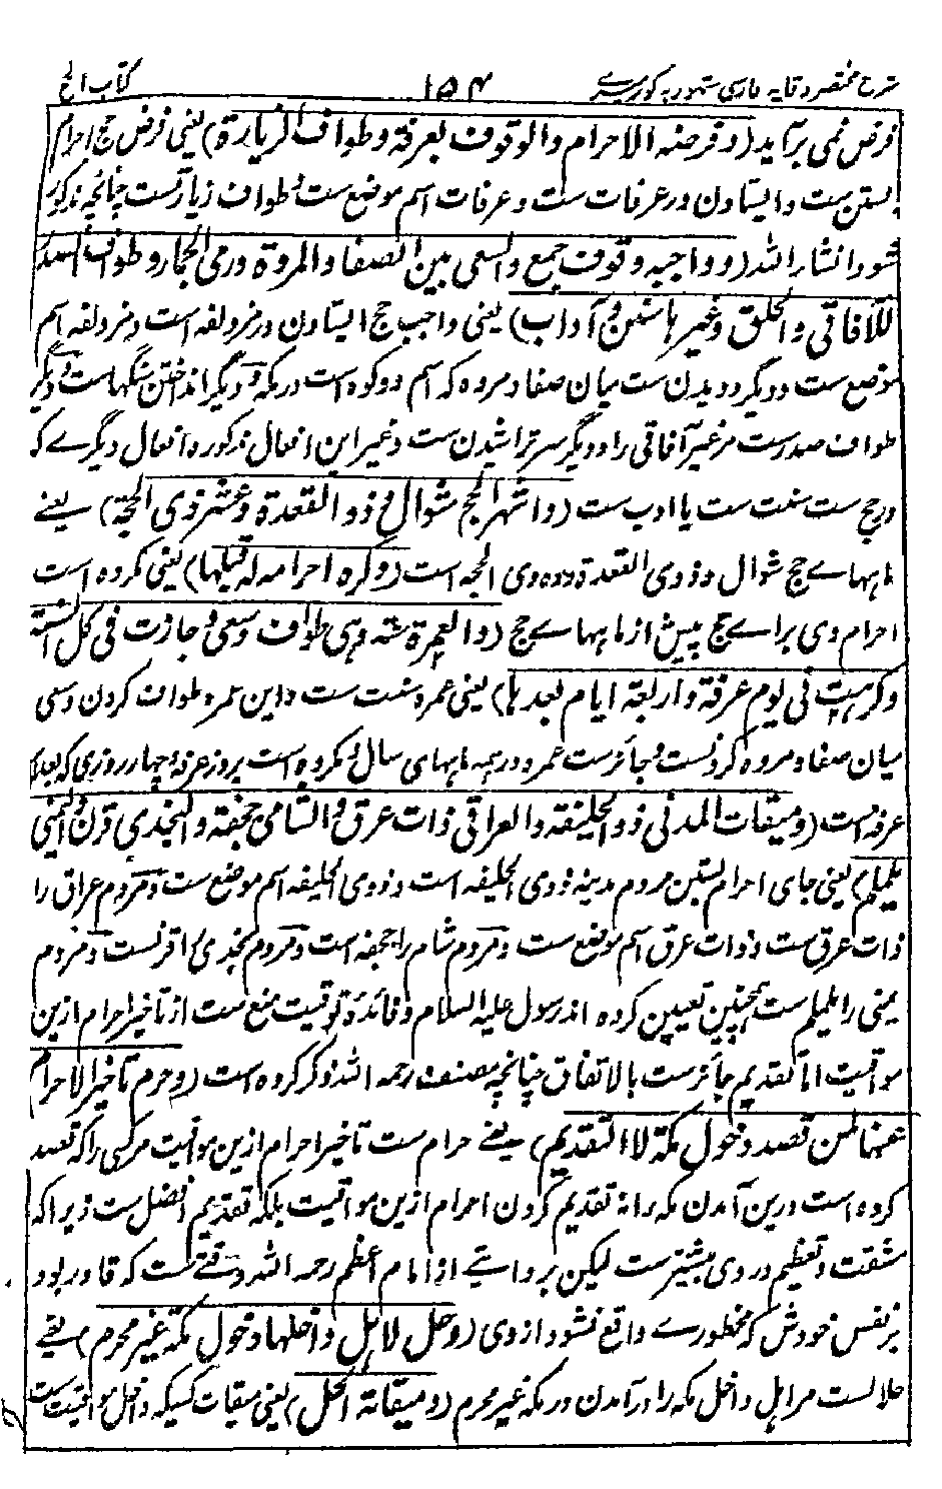 شرح مختصر وقایه فارسی مشهور به کورسیری ۱۵۴ کتاب الحج
فرض نمی برآید (و فرضه الاحرام والوقوف بعرفة وطواف الزیارة) یعنی فرض حج احرام
بستن ست و ایستادن در عرفات ست و عرفات اسم موضع ست و طواف زیارتست چنانچه مذکور
شود انشاراللہ (و واجبه وقوف جمع والسعی بین الصفا والمروة ورمی الجمار وطواف الصدر
للآفاقی والحلق وغیرها سنن وآداب) یعنی واجب حج ایستادن در مزدلفه است و مزدلفه اسم
موضع ست و دیگر دویدن ست میان صفا و مروه که اسم دو کوه است در مکه و دیگر انداختن سنگهاست و دیگر
طواف صدرست مر غیر آفاقی را و دیگر سر تراشیدن ست و غیر این افعال مذکوره افعال دیگرے که
در حج ست سنت ست یا ادب ست (واشهر الحج شوال وذو القعدة وعشر ذی الحجة) یعنے
ماههاے حج شوال و ذوی القعدة و ده ذی الحجه است (وکره احرامه له قبلها) یعنی مکروه است
احرام وی براے حج پیش از ماههاے حج (والعمرة سنة وهی طواف وسعی وجازت فی کل السنة
وکرهت فی یوم عرفة واربعة ایام بعدها) یعنی عمره سنت ست و این عمره طواف کردن و سعی
میان صفا و مروه کردنست و جائزست عمره در همه ماههای سال و مکروه است بروز عرفه و چهار روزی که بعد از
عرفه است (ومیقات المدنی ذو الحلیفه والعراقی ذات عرق والشامی جحفة والنجدی قرن والیمنی
یلملم) یعنی جای احرام بستن مردم مدینه ذوی الحلیفه است و ذوی الحلیفه اسم موضع ست و مردم عراق را
ذات عرق ست و ذات عرق اسم موضع ست و مردم شام را جحفه است و مردم نجدی را قرنست و مردم
یمنی را یلملم ست همچنین تعیین کرده اند رسول علیه السلام و فائدۀ توقیت منع ست از تاخیر احرام ازین
مواقیت اما تقدیم جائزست بالاتفاق چنانچه مصنف رحمه اللہ ذکر کرده است (وحرم تاخیر الاحرام
عنها لمن قصد دخول مکة لا التقدیم) یعنے حرام ست تاخیر احرام ازین مواقیت مر کسی را که قصد
کرده است درین آمدن مکه را نه تقدیم کردن احرام ازین مواقیت بلکه تقدیم افضل ست زیرا که
مشقت و تعظیم در وی بیشترست لیکن بروایتے از امام اعظم رحمه اللہ وقتے ست که قادر بود
بر نفس خودش که محظورے واقع نشود از وی (وحل لاهل داخلها دخول مکة غیر محرم) یعنے
حلالست مر اهل داخل مکه را در آمدن در مکه غیر محرم (ومیقاته الحل) یعنی میقات کسیکه داخل مواقیت ست